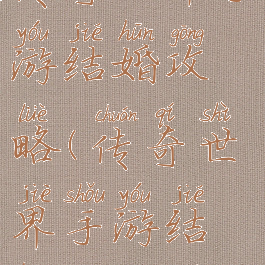 yóu jié hūn gōng
游结婚攻
lüè chuán qí shì
略(传奇世
jiè shǒu yóu jié
界手游结